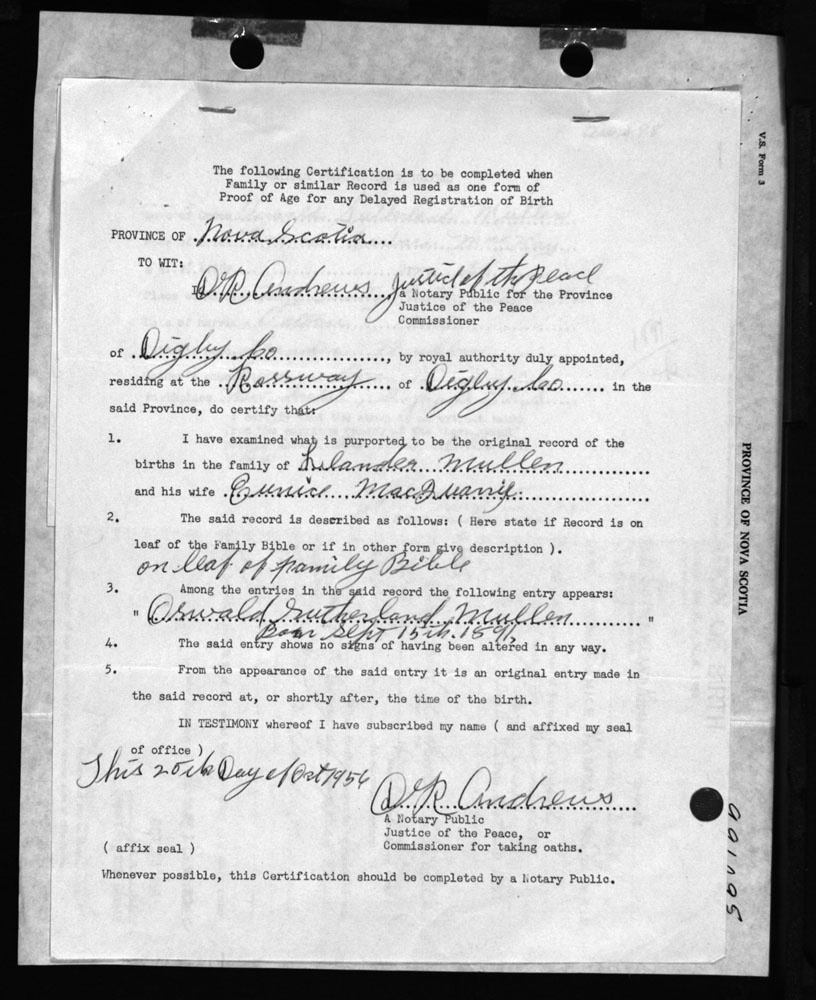 V.S. Form 3
The following Certification is to be completed when
Family or similar Record is used as one form of
Proof of Age for any Delayed Registration of Birth
PROVINCE OF Nova Scotia
TO WIT:
I, D R Andrews Justice of the Peace
a Notary Public for the Province
Justice of the Peace
Commissioner
of Digby Co, by royal authority duly appointed,
residing at the Rossway of Digby Co in the
said Province, do certify that:
1. I have examined what is purported to be the original record of the
births in the family of Lelander Mullen
and his wife Eunice
2. The said record is described as follows: ( Here state if Record is on
leaf of the Family Bible or if in other form give description ).
on leaf of family Bible
3. Among the entries in the said record the following entry appears:
" Oswald Sutherland Mullen "
Born Sept 15th. 1891
4. The said entry shows no signs of having been altered in any way.
5. From the appearance of the said entry it is an original entry made in
the said record at, or shortly after, the time of the birth.
IN TESTIMONY whereof I have subscribed my name ( and affixed my seal
of office )
This 25th Day of Oct 1956
D R Andrews
A Notary Public
Justice of the Peace, or
Commissioner for taking oaths.
( affix seal )
Whenever possible, this Certification should be completed by a Notary Public.
PROVINCE OF NOVA SCOTIA